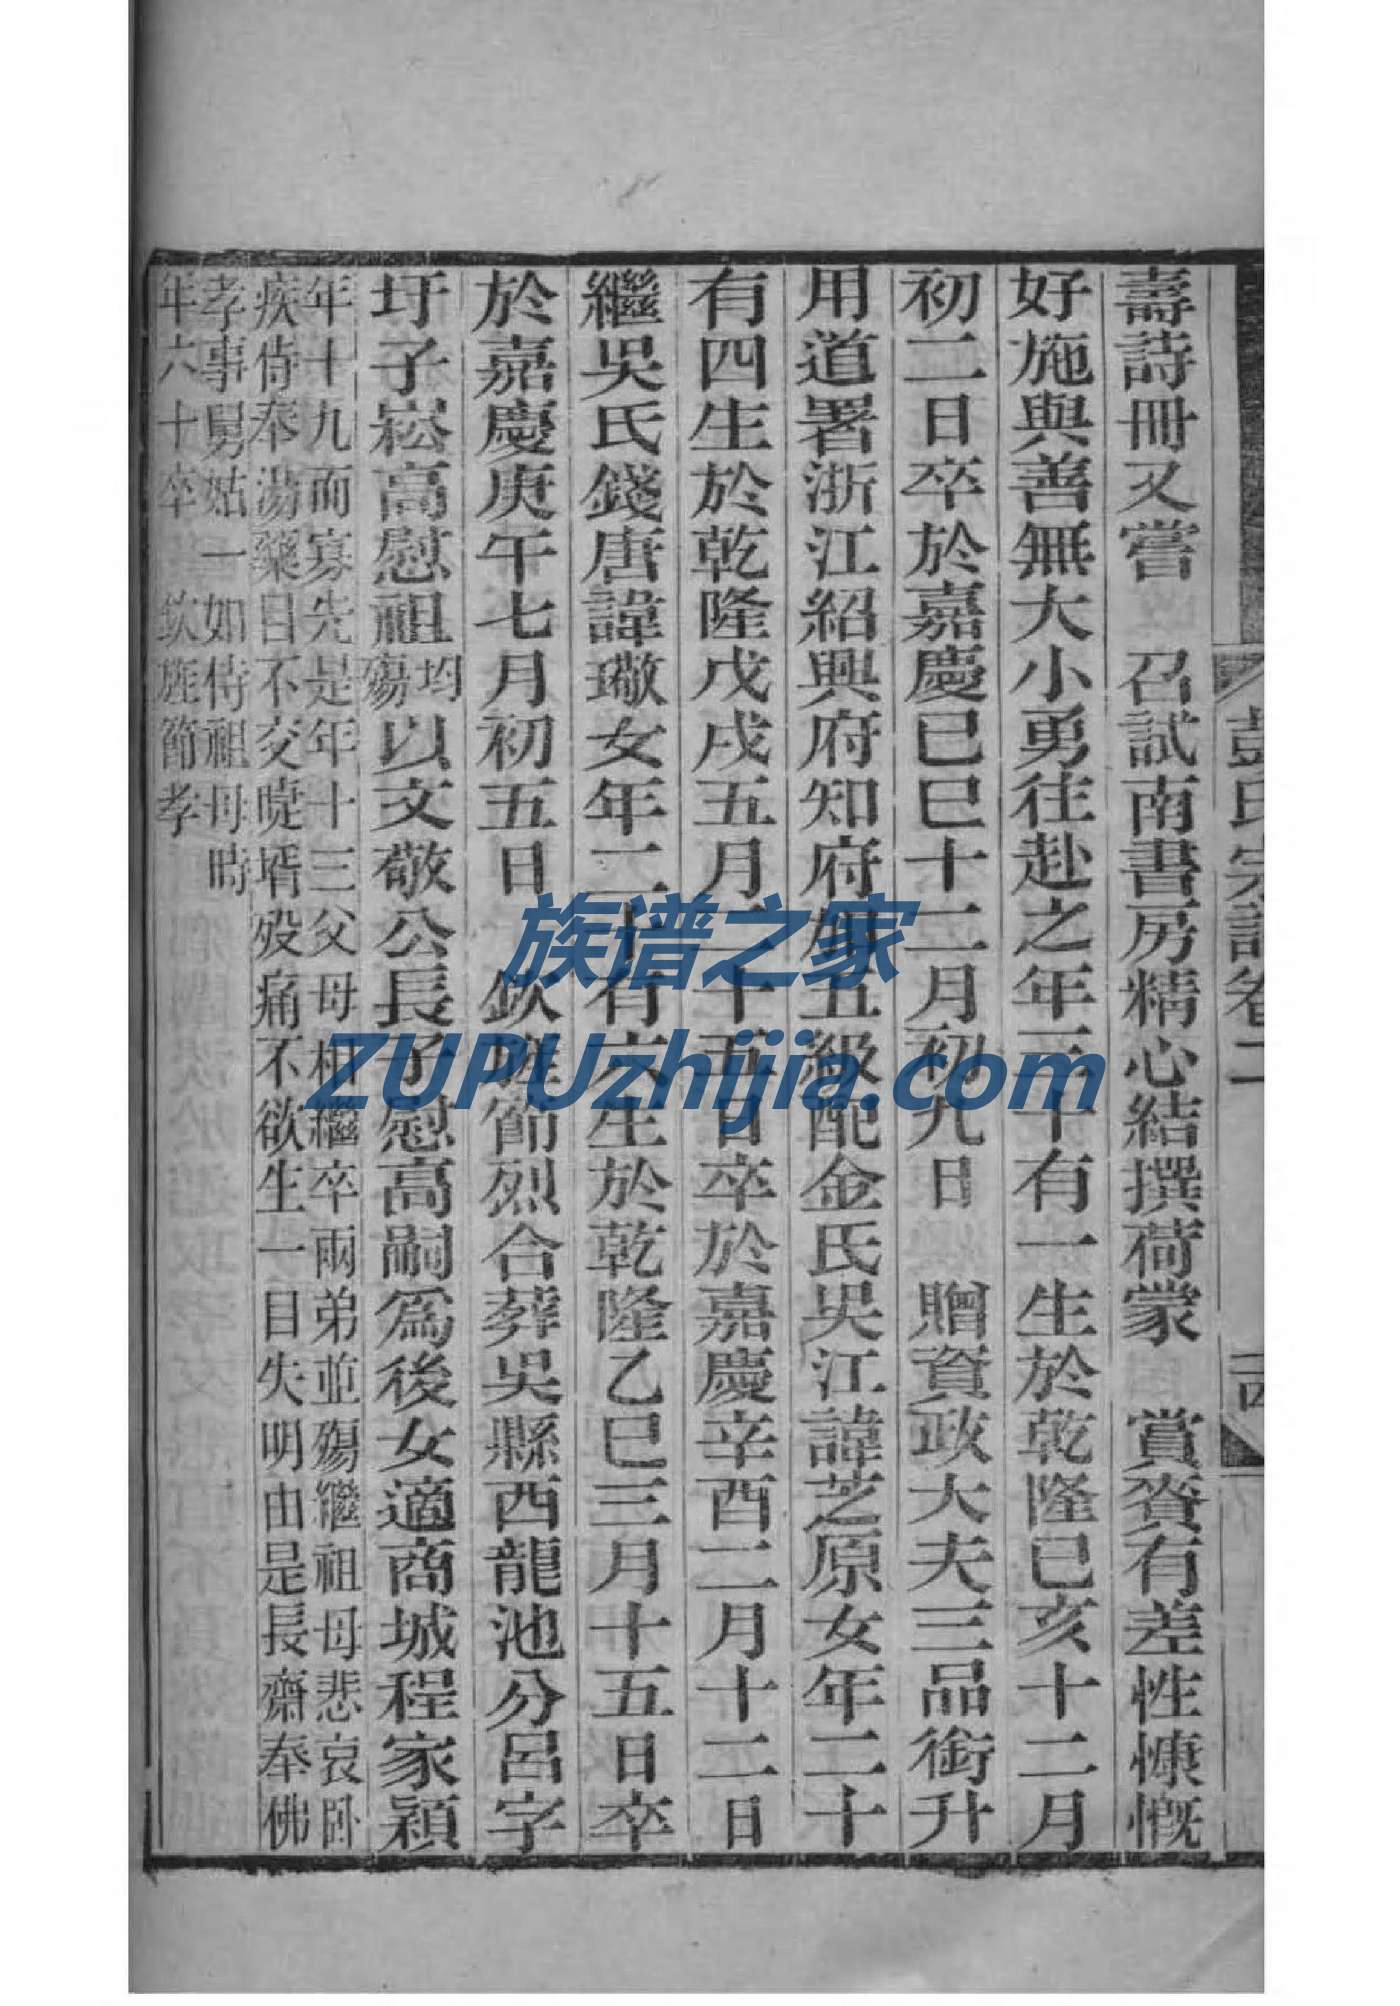 壽詩冊又嘗　召試南書房精心結撰荷蒙　賞賚有差性慷慨
好施與善無大小勇往赴之年三十有一生於乾隆己亥十二月
初二日卒於嘉慶己巳十二月初九日　贈資政大夫三品銜升
用道署浙江紹興府知府加五級配金氏吳江諱芝原女年二十
有四生於乾隆戊戌五月二十五日卒於嘉慶辛酉二月十二日
繼吳氏錢唐諱璥女年二十有六生於乾隆乙巳三月十五日卒
於嘉慶庚午七月初五日　欽旌節烈合葬吳縣西龍池分呂字
圩子崧高慰祖均殤以文敬公長子慰高嗣爲後女適商城程家潁
年十九而寡先是年十三父母相繼卒兩弟並殤繼祖母悲哀臥
疾侍奉湯藥目不交睫壻歿痛不欲生一目失明由是長齋奉佛
孝事舅姑一如侍祖母時
年六十卒　欽旌節孝
彭氏宗譜卷二
族谱之家
ZUPUzhijia.com